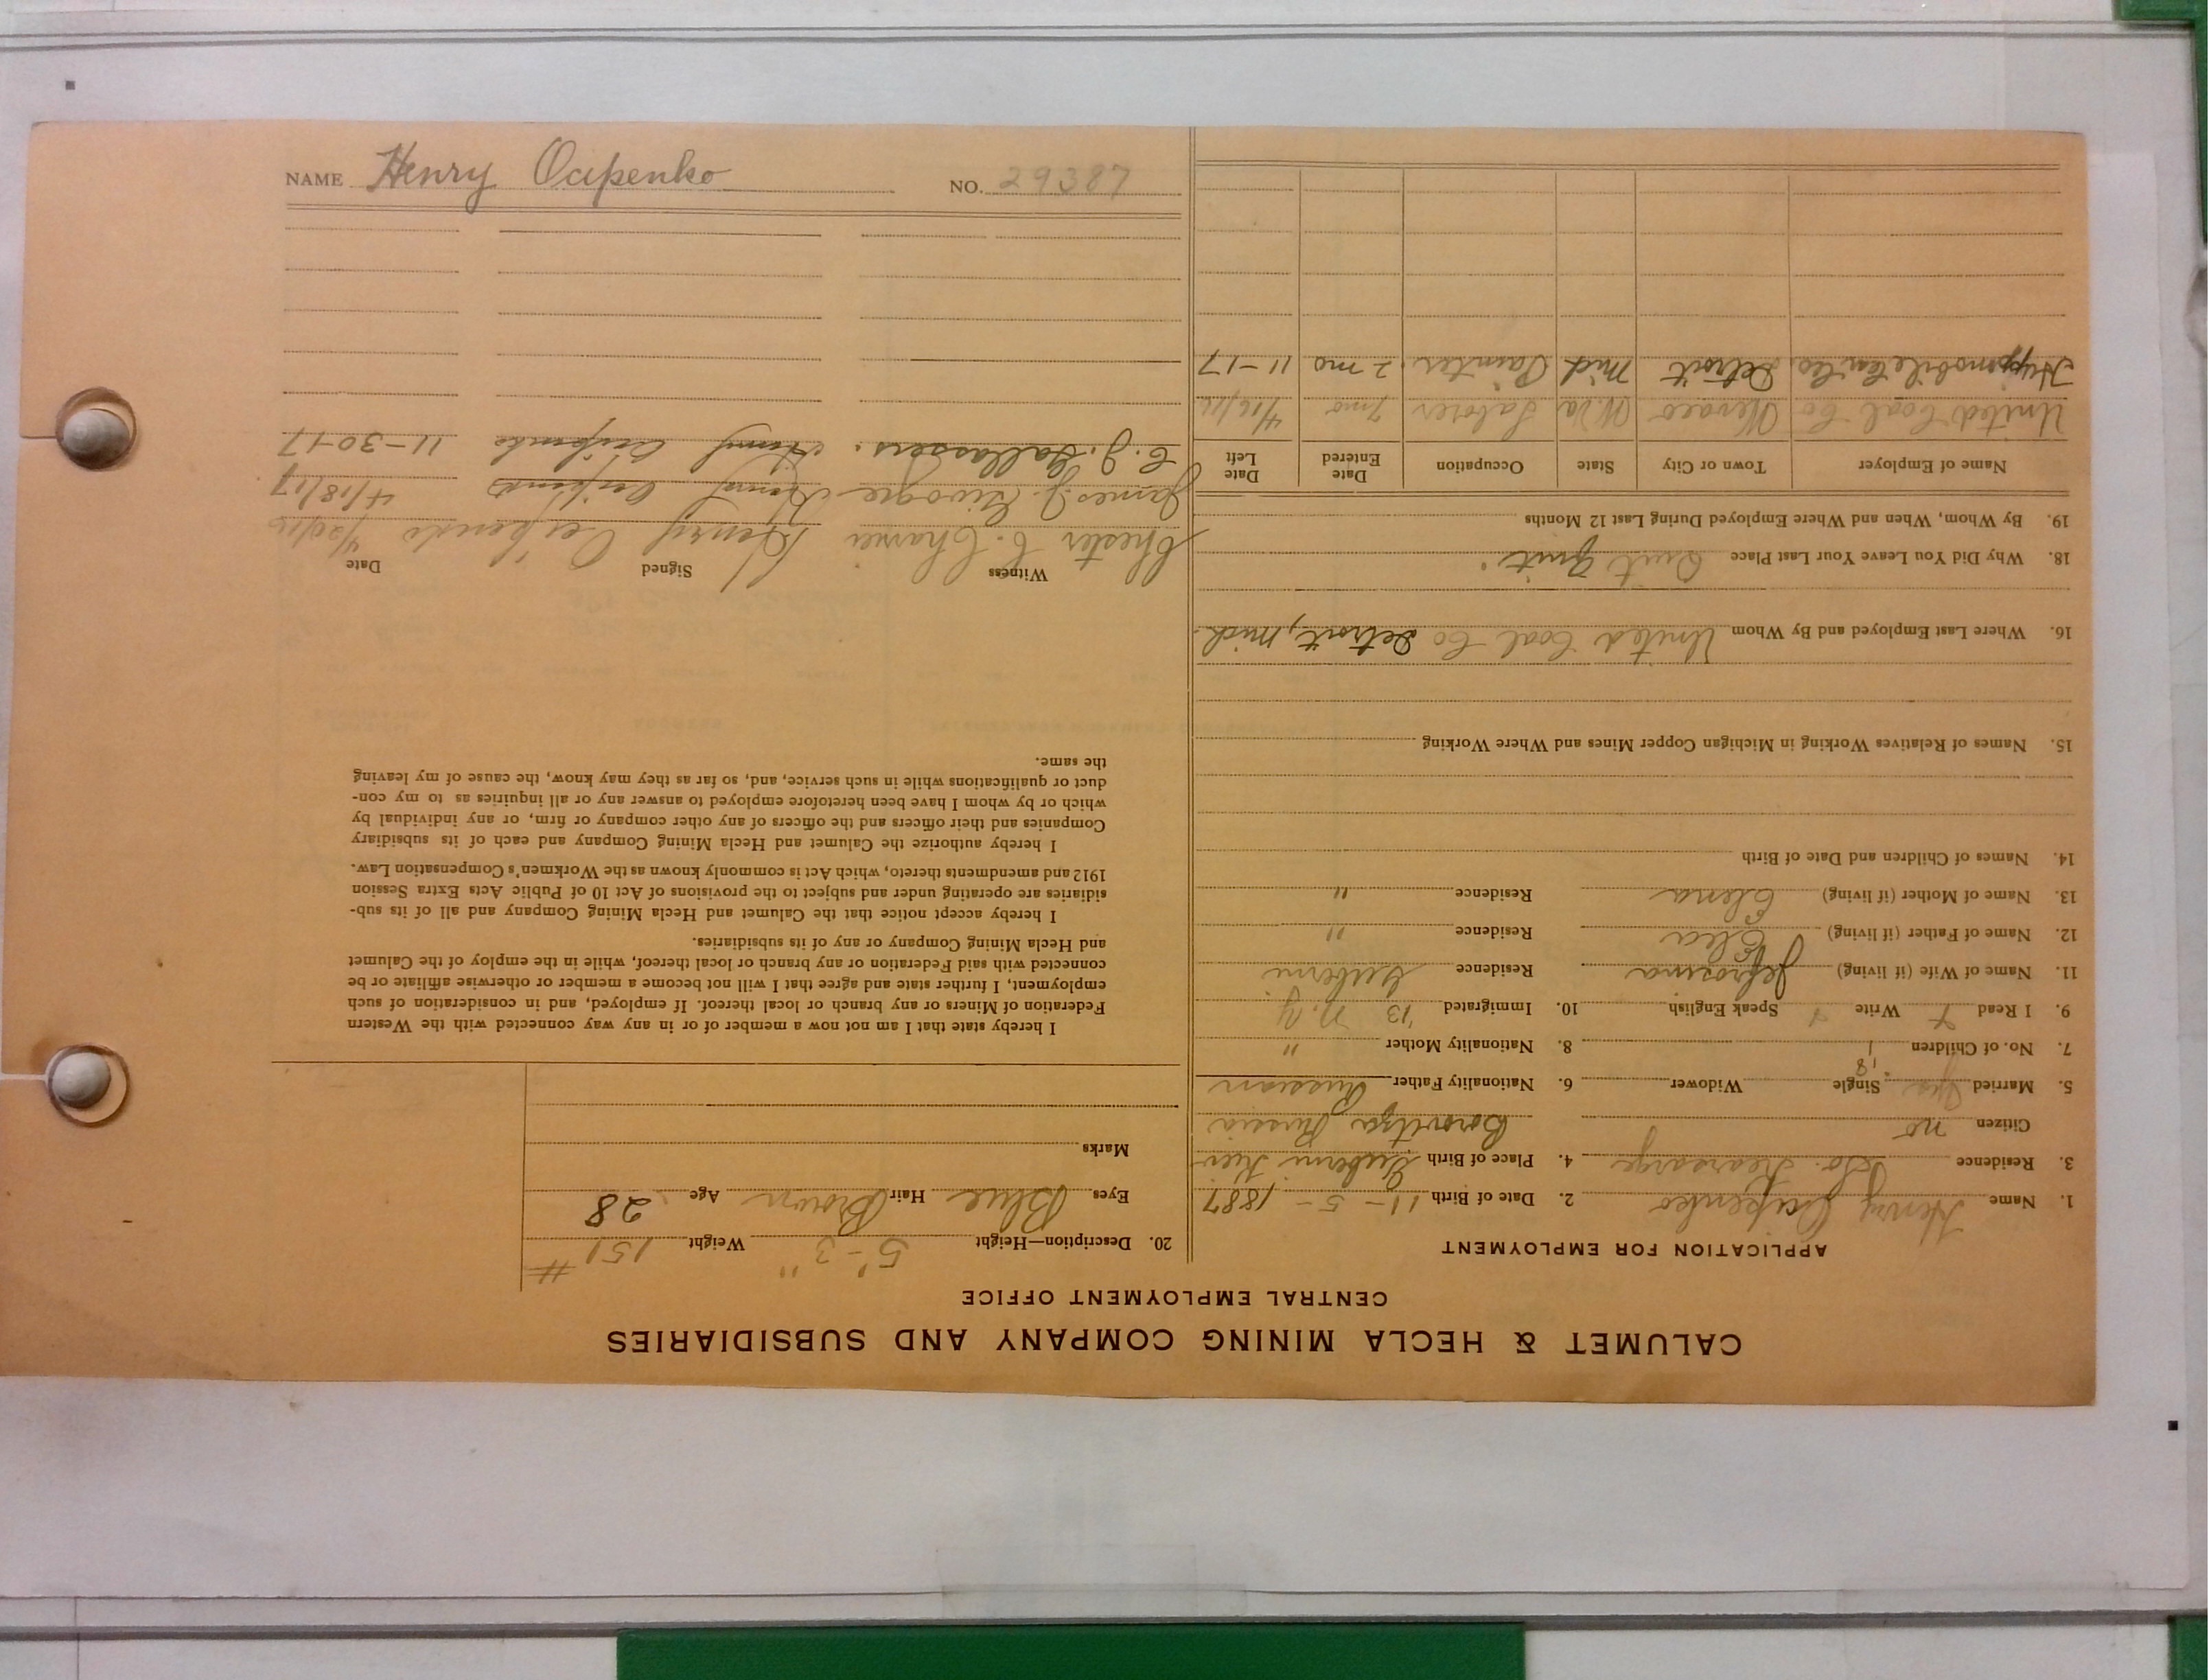 CALUMET & HECLA MINING COMPANY AND SUBSIDIARIES
CENTRAL EMPLOYMENT OFFICE
APPLICATION FOR EMPLOYMENT
1. Name Henry Ocipenko 2. Date of Birth 11-5-1887
3. Residence So. Kearsarge 4. Place of Birth Guberni Kiev
Citizen no Russia
5. Married Yes Single Widower 6. Nationality Father Russian
7. No. of Children 1 8. Nationality Mother "
9. I Read Write Speak English 10. Immigrated '13 N.Y.
11. Name of Wife (if living) Residence Guberni
12. Name of Father (if living) Residence "
13. Name of Mother (if living) Elena Residence "
14. Names of Children and Date of Birth
15. Names of Relatives Working in Michigan Copper Mines and Where Working
16. Where Last Employed and By Whom United Coal Co Detroit, Mich.
18. Why Did You Leave Your Last Place Quit Quit.
19. By Whom, When and Where Employed During Last 12 Months
Name of Employer Town or City State Occupation Date Entered Date Left
United Coal Co W.Va Laborer 7mo 4/16/16
Detroit Mich Painter. 2 mo 11-17
20. Description—Height 5'-3" Weight 151 #
Eyes Blue Hair Brown Age 28
Marks
I hereby state that I am not now a member of or in any way connected with the Western
Federation of Miners or any branch or local thereof. If employed, and in consideration of such
employment, I further state and agree that I will not become a member or otherwise affiliate or be
connected with said Federation or any branch or local thereof, while in the employ of the Calumet
and Hecla Mining Company or any of its subsidiaries.
I hereby accept notice that the Calumet and Hecla Mining Company and all of its sub-
sidiaries are operating under and subject to the provisions of Act 10 of Public Acts Extra Session
1912 and amendments thereto, which Act is commonly known as the Workmen's Compensation Law.
I hereby authorize the Calumet and Hecla Mining Company and each of its subsidiary
Companies and their officers and the officers of any other company or firm, or any individual by
which or by whom I have been heretofore employed to answer any or all inquiries as to my con-
duct or qualifications while in such service, and, so far as they may know, the cause of my leaving
the same.
Witness Signed Date
Chester C. Henry Ocipenko 4/20/16
James J. Henry Ocipenko 4/18/17
C. J. Henry Ocipenko 11-30-17
NAME Henry Ocipenko NO. 29387